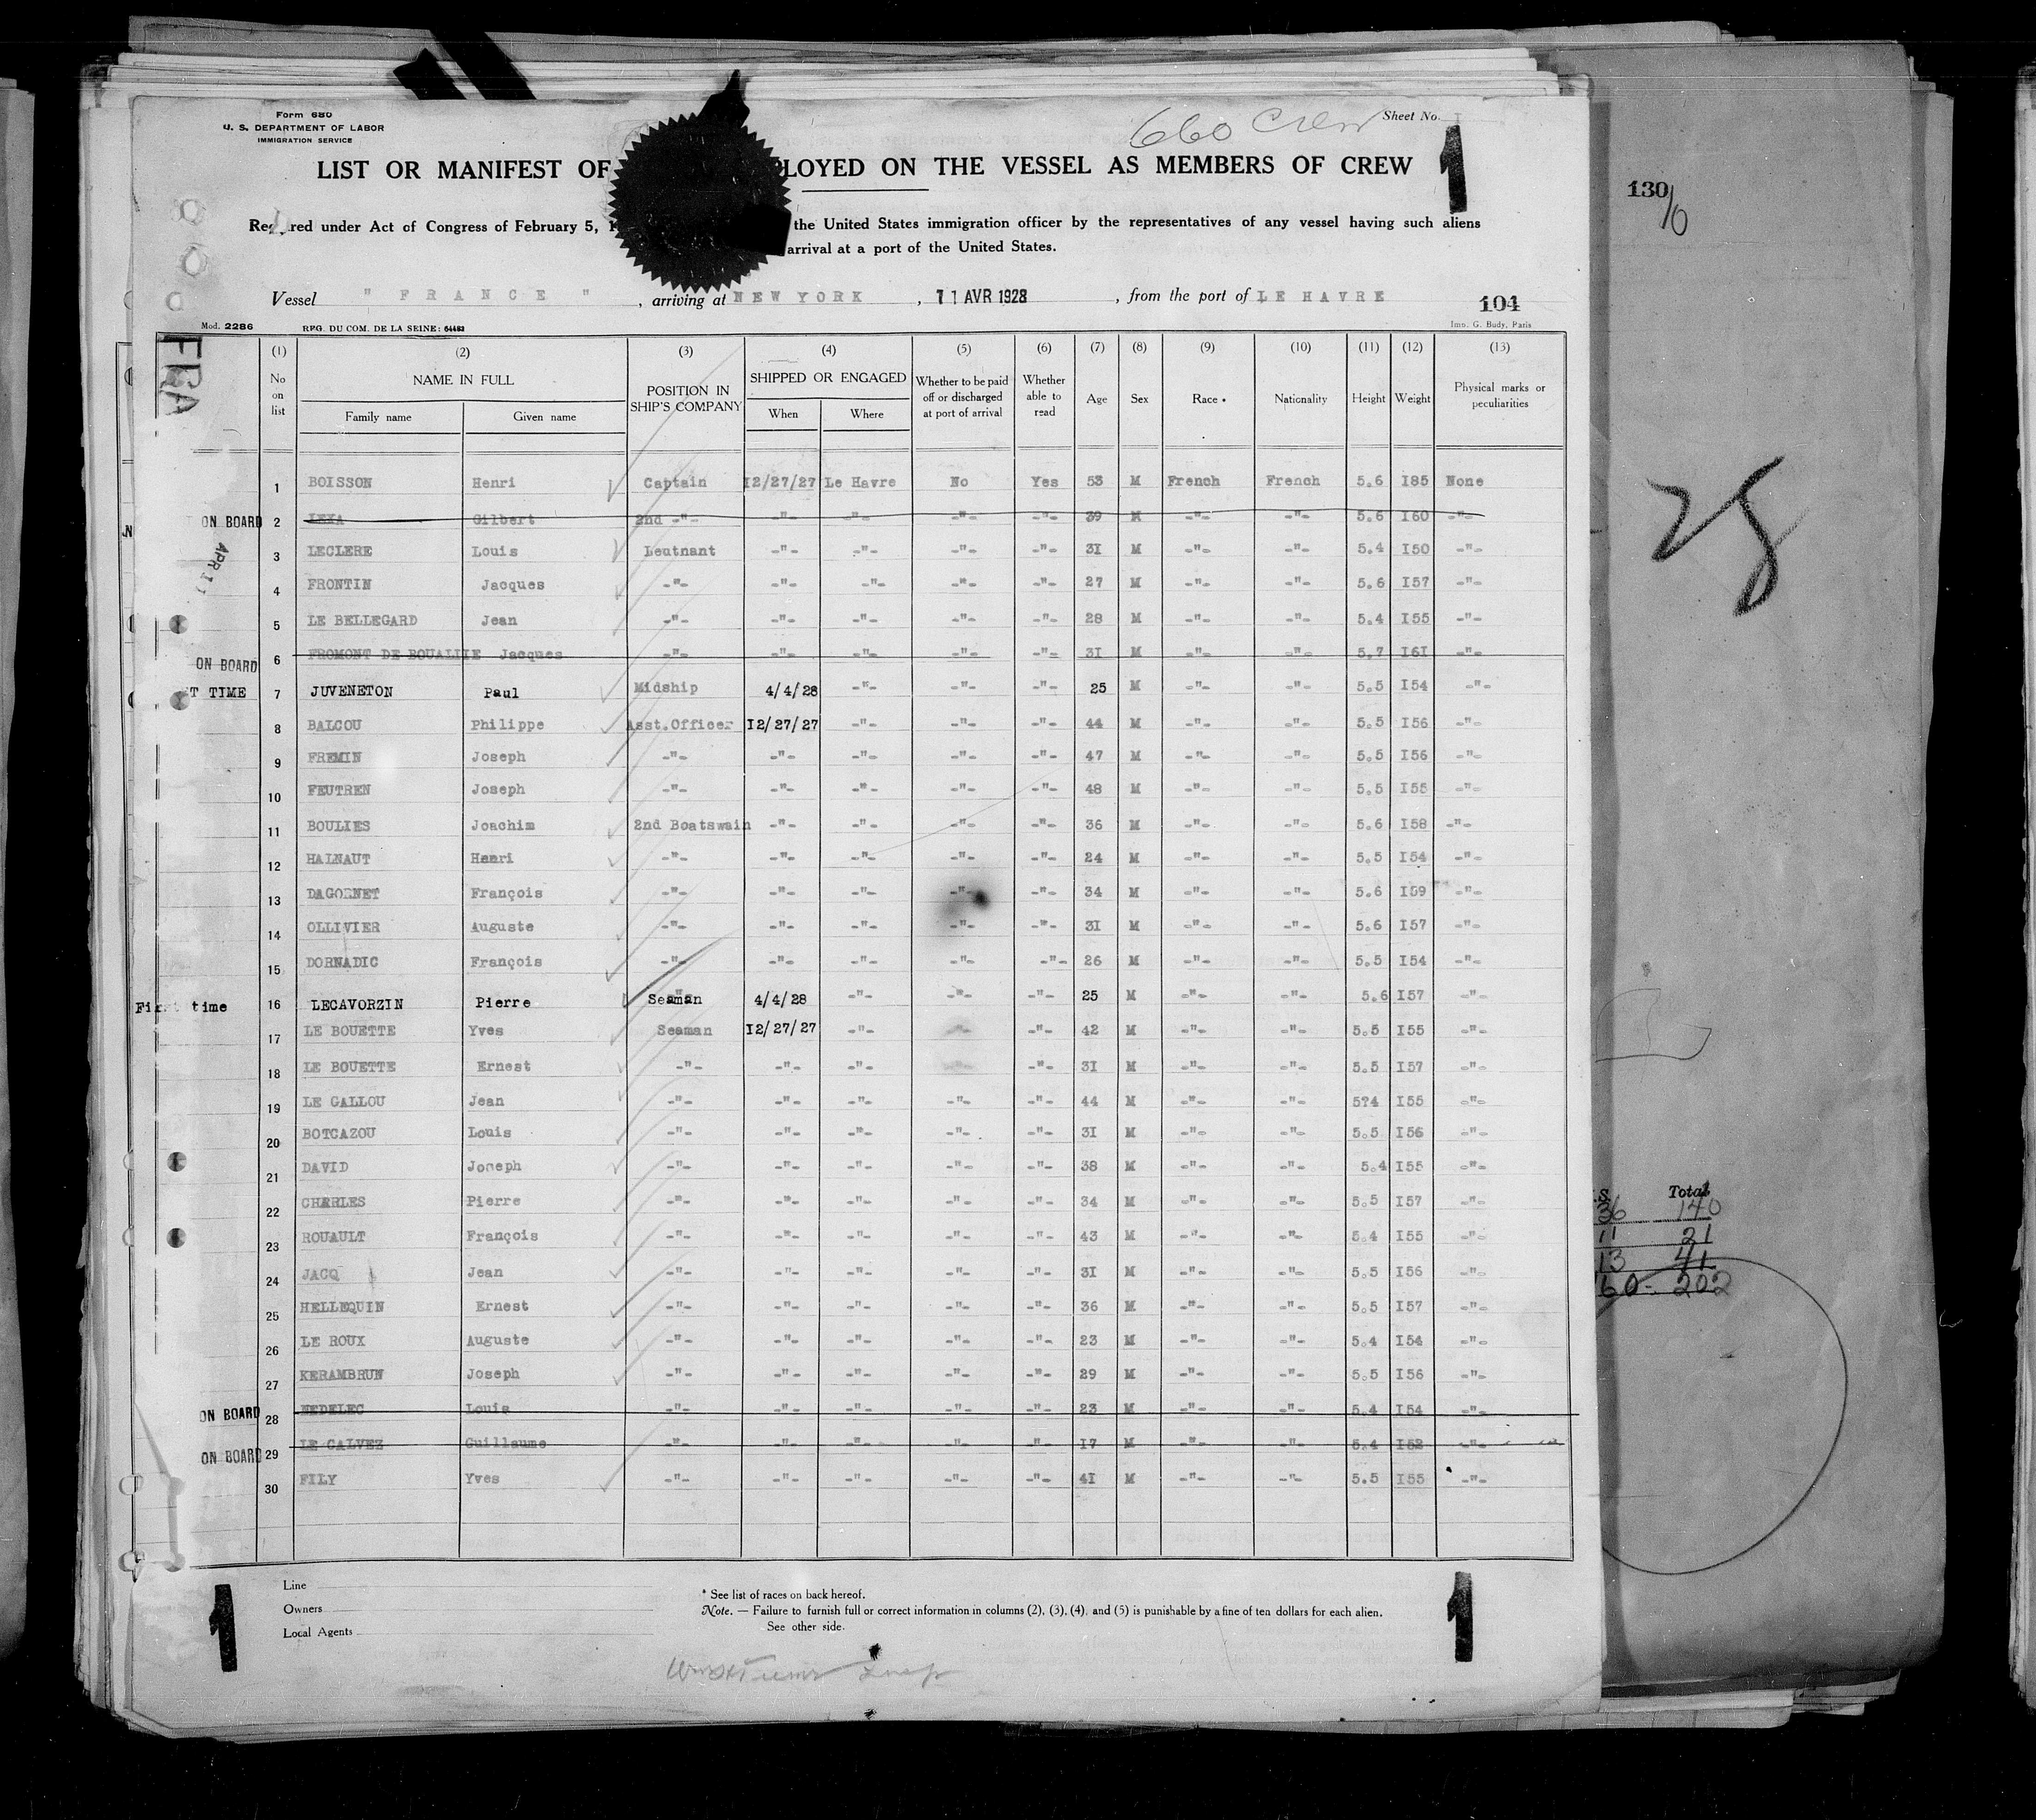 Form 680
U. S. DEPARTMENT OF LABOR
IMMIGRATION SERVICE
660 Crew
Sheet No. I
1
LIST OR MANIFEST OF LOYED ON THE VESSEL AS MEMBERS OF CREW
130
Required under Act of Congress of February 5, the United States immigration officer by the representatives of any vessel having such aliens
arrival at a port of the United States.
Vessel " FRANCE " , arriving at NEW YORK , 11 AVR 1928 , from the port of LE HAVRE
104
Mod. 2286 REG. DU COM. DE LA SEINE: 64483 Imp. G. Budy, Paris
FRA
(1) (2) (3) (4) (5) (6) (7) (8) (9) (10) (11) (12) (13)
No on list NAME IN FULL Family name Given name POSITION IN SHIP'S COMPANY SHIPPED OR ENGAGED When Where Whether to be paid off or discharged at port of arrival Whether able to read Age Sex Race * Nationality Height Weight Physical marks or peculiarities
1 BOISSON Henri Captain I2/27/27 Le Havre No Yes 53 M French French 5.6 I85 None
ON BOARD 2 LEXA Gilbert 2nd -"- -"- -"- -"- -"- 39 M -"- -"- 5.6 I60 -"-
APR 11
3 LECLERE Louis Leutnant -"- -"- -"- -"- 3I M -"- -"- 5.4 I50 -"-
4 FRONTIN Jacques -"- -"- -"- -"- -"- 27 M -"- -"- 5.6 I57 -"-
5 LE BELLEGARD Jean -"- -"- -"- -"- -"- 28 M -"- -"- 5.4 I55 -"-
ON BOARD 6 FROMONT DE BOUALLIE Jacques -"- -"- -"- -"- -"- 3I M -"- -"- 5.7 I6I -"-
T TIME 7 JUVENETON Paul Midship 4/4/28 -"- -"- -"- 25 M -"- -"- 5.5 I54 -"-
8 BALCOU Philippe Asst.Officer I2/27/27 -"- -"- -"- 44 M -"- -"- 5.5 I56 -"-
9 FREMIN Joseph -"- -"- -"- -"- -"- 47 M -"- -"- 5.5 I56 -"-
10 FEUTREN Joseph -"- -"- -"- -"- -"- 48 M -"- -"- 5.5 I55 -"-
11 BOULIES Joachim 2nd Boatswain -"- -"- -"- -"- 36 M -"- -"- 5.6 I58 -"-
12 HAINAUT Henri -"- -"- -"- -"- -"- 24 M -"- -"- 5.5 I54 -"-
13 DAGORNET François -"- -"- -"- -"- -"- 34 M -"- -"- 5.6 I59 -"-
14 OLLIVIER Auguste -"- -"- -"- -"- -"- 3I M -"- -"- 5.6 I57 -"-
15 DORNADIC François -"- -"- -"- -"- -"- 26 M -"- -"- 5.5 I54 -"-
First time 16 LECAVORZIN Pierre Seaman 4/4/28 -"- -"- -"- 25 M -"- -"- 5.6 I57 -"-
17 LE BOUETTE Yves Seaman I2/27/27 -"- -"- -"- 42 M -"- -"- 5.5 I55 -"-
18 LE BOUETTE Ernest -"- -"- -"- -"- -"- 3I M -"- -"- 5.5 I57 -"-
19 LE GALLOU Jean -"- -"- -"- -"- -"- 44 M -"- -"- 5?4 I55 -"-
20 BOTCAZOU Louis -"- -"- -"- -"- -"- 3I M -"- -"- 5.5 I56 -"-
21 DAVID Joseph -"- -"- -"- -"- -"- 38 M -"- -"- 5.4 I55 -"-
22 CHARLES Pierre -"- -"- -"- -"- -"- 34 M -"- -"- 5.5 I57 -"-
23 ROUAULT François -"- -"- -"- -"- -"- 43 M -"- -"- 5.4 I55 -"-
24 JACQ Jean -"- -"- -"- -"- -"- 3I M -"- -"- 5.5 I56 -"-
25 HELLEQUIN Ernest -"- -"- -"- -"- -"- 36 M -"- -"- 5.5 I57 -"-
26 LE ROUX Auguste -"- -"- -"- -"- -"- 23 M -"- -"- 5.4 I54 -"-
27 KERAMBRUN Joseph -"- -"- -"- -"- -"- 29 M -"- -"- 5.5 I56 -"-
ON BOARD 28 NEDELEC Louis -"- -"- -"- -"- -"- 23 M -"- -"- 5.4 I54 -"-
ON BOARD 29 LE CALVEZ Guillaume -"- -"- -"- -"- -"- I7 M -"- -"- 5.4 I52 -"-
30 FILY Yves -"- -"- -"- -"- -"- 4I M -"- -"- 5.5 I55 -"-
.S. Total
36 140
11 21
13 41
60 - 202
Line
Owners
Local Agents
* See list of races on back hereof.
Note. — Failure to furnish full or correct information in columns (2), (3), (4), and (5) is punishable by a fine of ten dollars for each alien.
See other side.
1
1